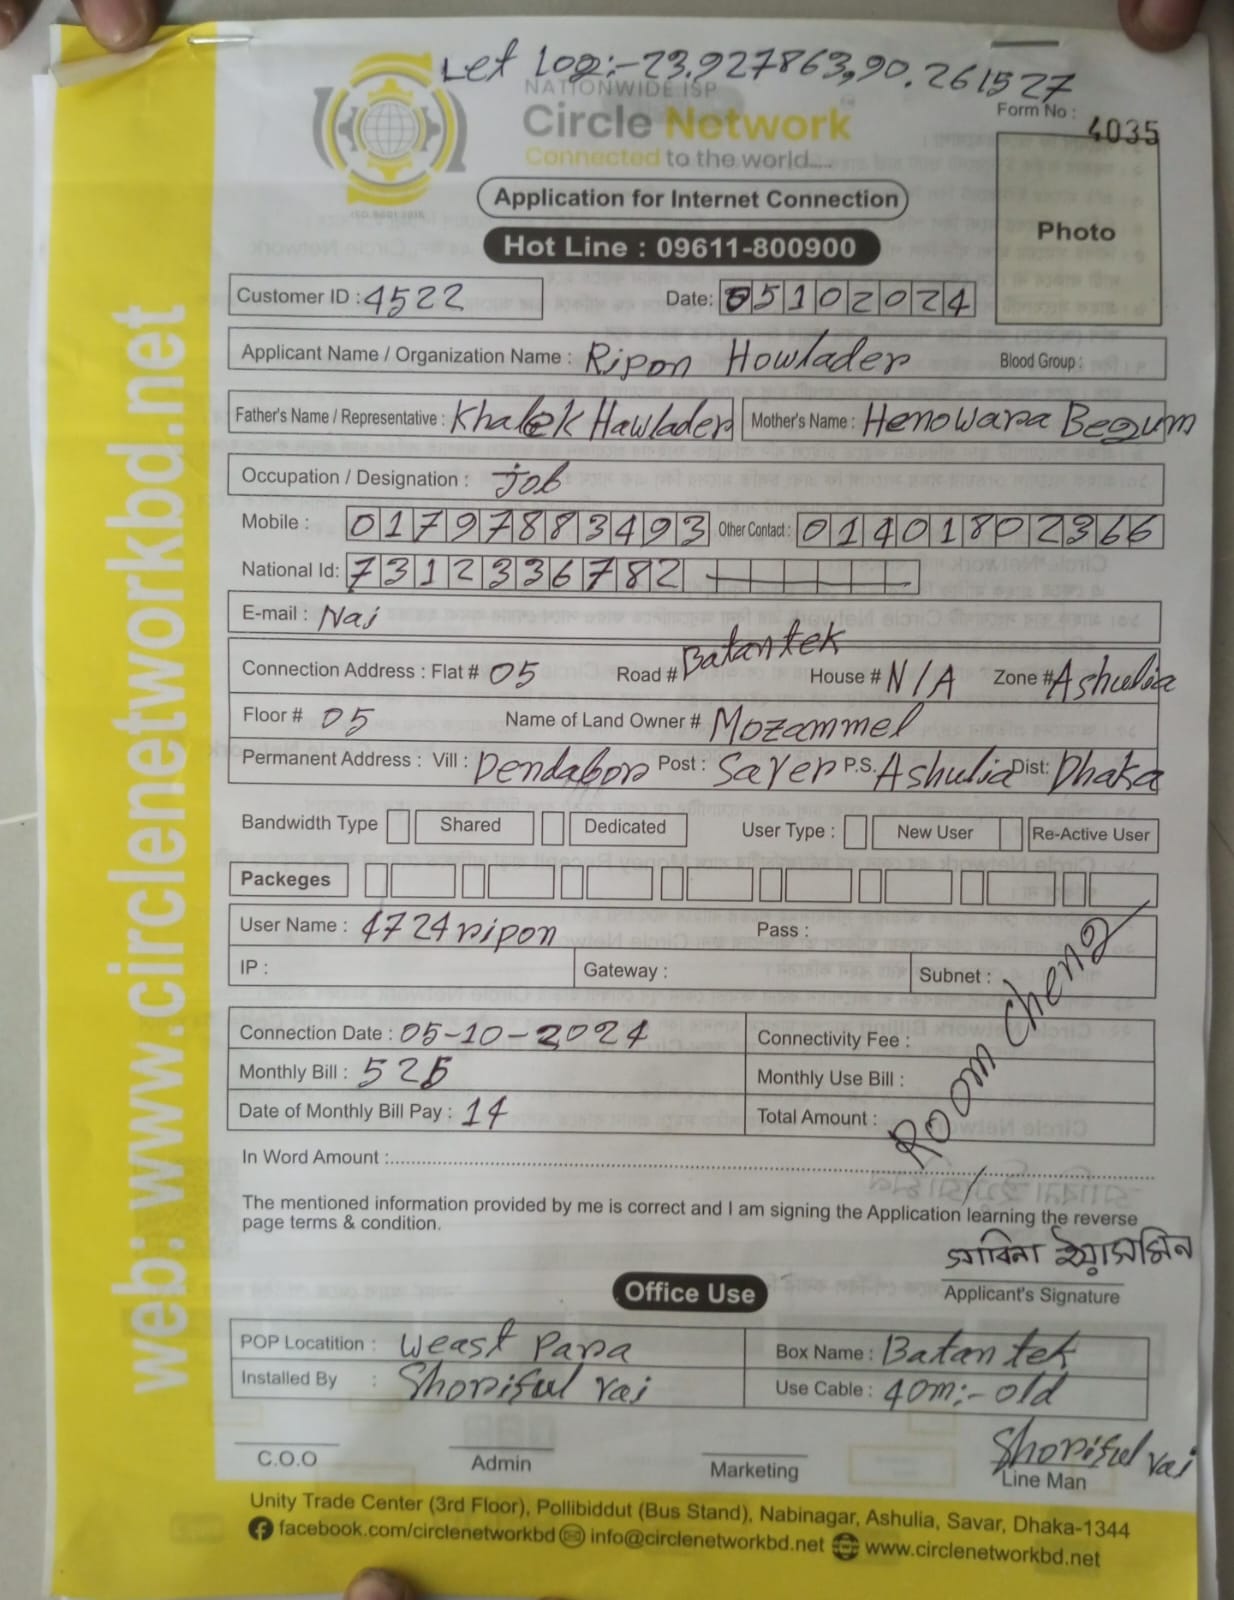 Let Log:-23.927863,90.261527
NATIONWIDE ISP
Circle Network
Connected to the world....
ISO.9001:2015
Form No : 4035
Photo
Application for Internet Connection
Hot Line : 09611-800900
Customer ID : 4522 Date: 05102024
Applicant Name / Organization Name : Ripon Howlader Blood Group :
Father's Name / Representative : Khalek Hawlader Mother's Name : Henowara Begum
Occupation / Designation : job
Mobile : 01797883493 Other Contact : 01401802366
National Id: 7312336782
E-mail : Nai
Connection Address : Flat # 05 Road # Batantek House # N/A Zone # Ashulia
Floor # 05 Name of Land Owner # Mozammel
Permanent Address : Vill : Dendabor Post : Saver P.S. Ashulia Dist: Dhaka
Bandwidth Type Shared Dedicated User Type : New User Re-Active User
Packeges
User Name : 4724ripon Pass :
IP : Gateway : Subnet :
Room Cheng
Connection Date : 05-10-2024 Connectivity Fee :
Monthly Bill : 525 Monthly Use Bill :
Date of Monthly Bill Pay : 14 Total Amount :
In Word Amount :
The mentioned information provided by me is correct and I am signing the Application learning the reverse
page terms & condition.
সাবিনা ইয়াসমিন
Applicant's Signature
Office Use
POP Locatition : Weast Para Box Name : Batan tek
Installed By : Shoriful vai Use Cable : 40m:- old
Shoriful vai
C.O.O Admin Marketing Line Man
Unity Trade Center (3rd Floor), Pollibiddut (Bus Stand), Nabinagar, Ashulia, Savar, Dhaka-1344
facebook.com/circlenetworkbd info@circlenetworkbd.net www.circlenetworkbd.net
web: www.circlenetworkbd.net